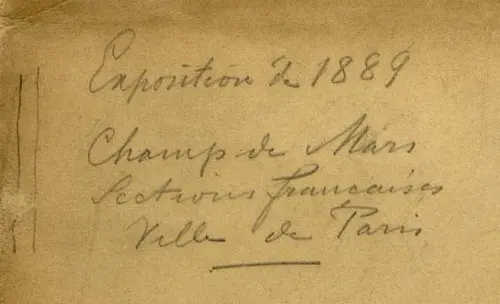 Exposition de 1889
Champ de Mars
Sections françaises
Ville de Paris